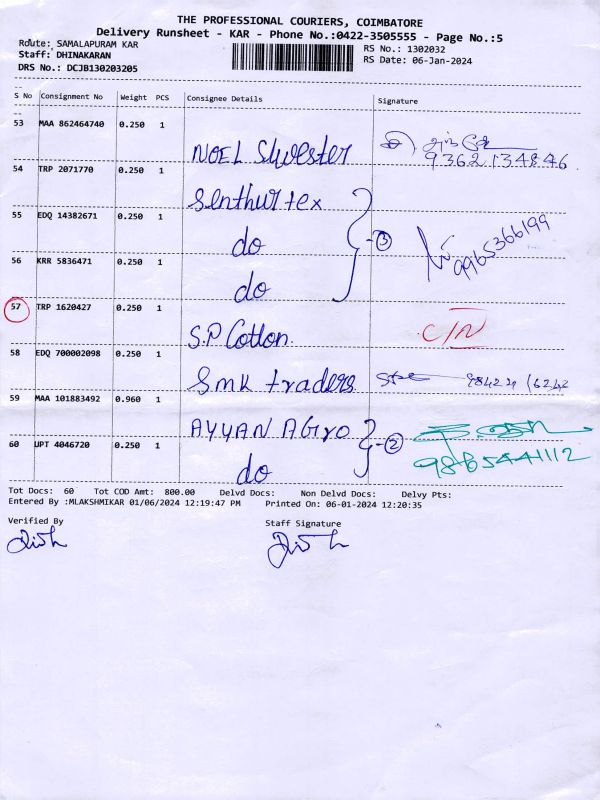 THE PROFESSIONAL COURIERS, COIMBATORE
Delivery Runsheet - KAR - Phone No.:0422-3505555 - Page No.:5
Route: SAMALAPURAM KAR
RS No.: 1302032
Staff: DHINAKARAN
RS Date: 06-Jan-2024
DRS No.: DCJB130203205
S No Consignment No Weight PCS Consignee Details Signature
53 MAA 862464740 0.250 1 NOEL Silvester
9362134846
54 TRP 2071770 0.250 1 Senthur tex
55 EDQ 14382671 0.250 1 do
3 9965366199
56 KRR 5836471 0.250 1 do
57 TRP 1620427 0.250 1 S.P Cotton C/N
58 EDQ 700002098 0.250 1 Smk traders
59 MAA 101883492 0.960 1 AYYAN AGro
2 9865441112
60 UPT 4046720 0.250 1 do
Tot Docs: 60 Tot COD Amt: 800.00 Delvd Docs: Non Delvd Docs: Delvy Pts:
Entered By :MLAKSHMIKAR 01/06/2024 12:19:47 PM Printed On: 06-01-2024 12:20:35
Verified By Staff Signature